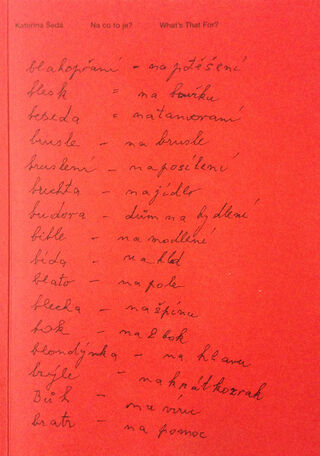 Kateřina Šedá Na co to je? What's That For?
blahopřání – na potěšení
blesk = na bouřku
beseda = na tancování
brusle – na brusle
bruslení – na posílení
buchta – na jídlo
budova – dům na bydlení
bible – na modlení
bída – na hlad
blato – na pole
blecha – na špínu
bok – na 2 bok
blondýnka – na hlavu
brýle – na krátkozrak
Bůh – na víru
bratr – na pomoc